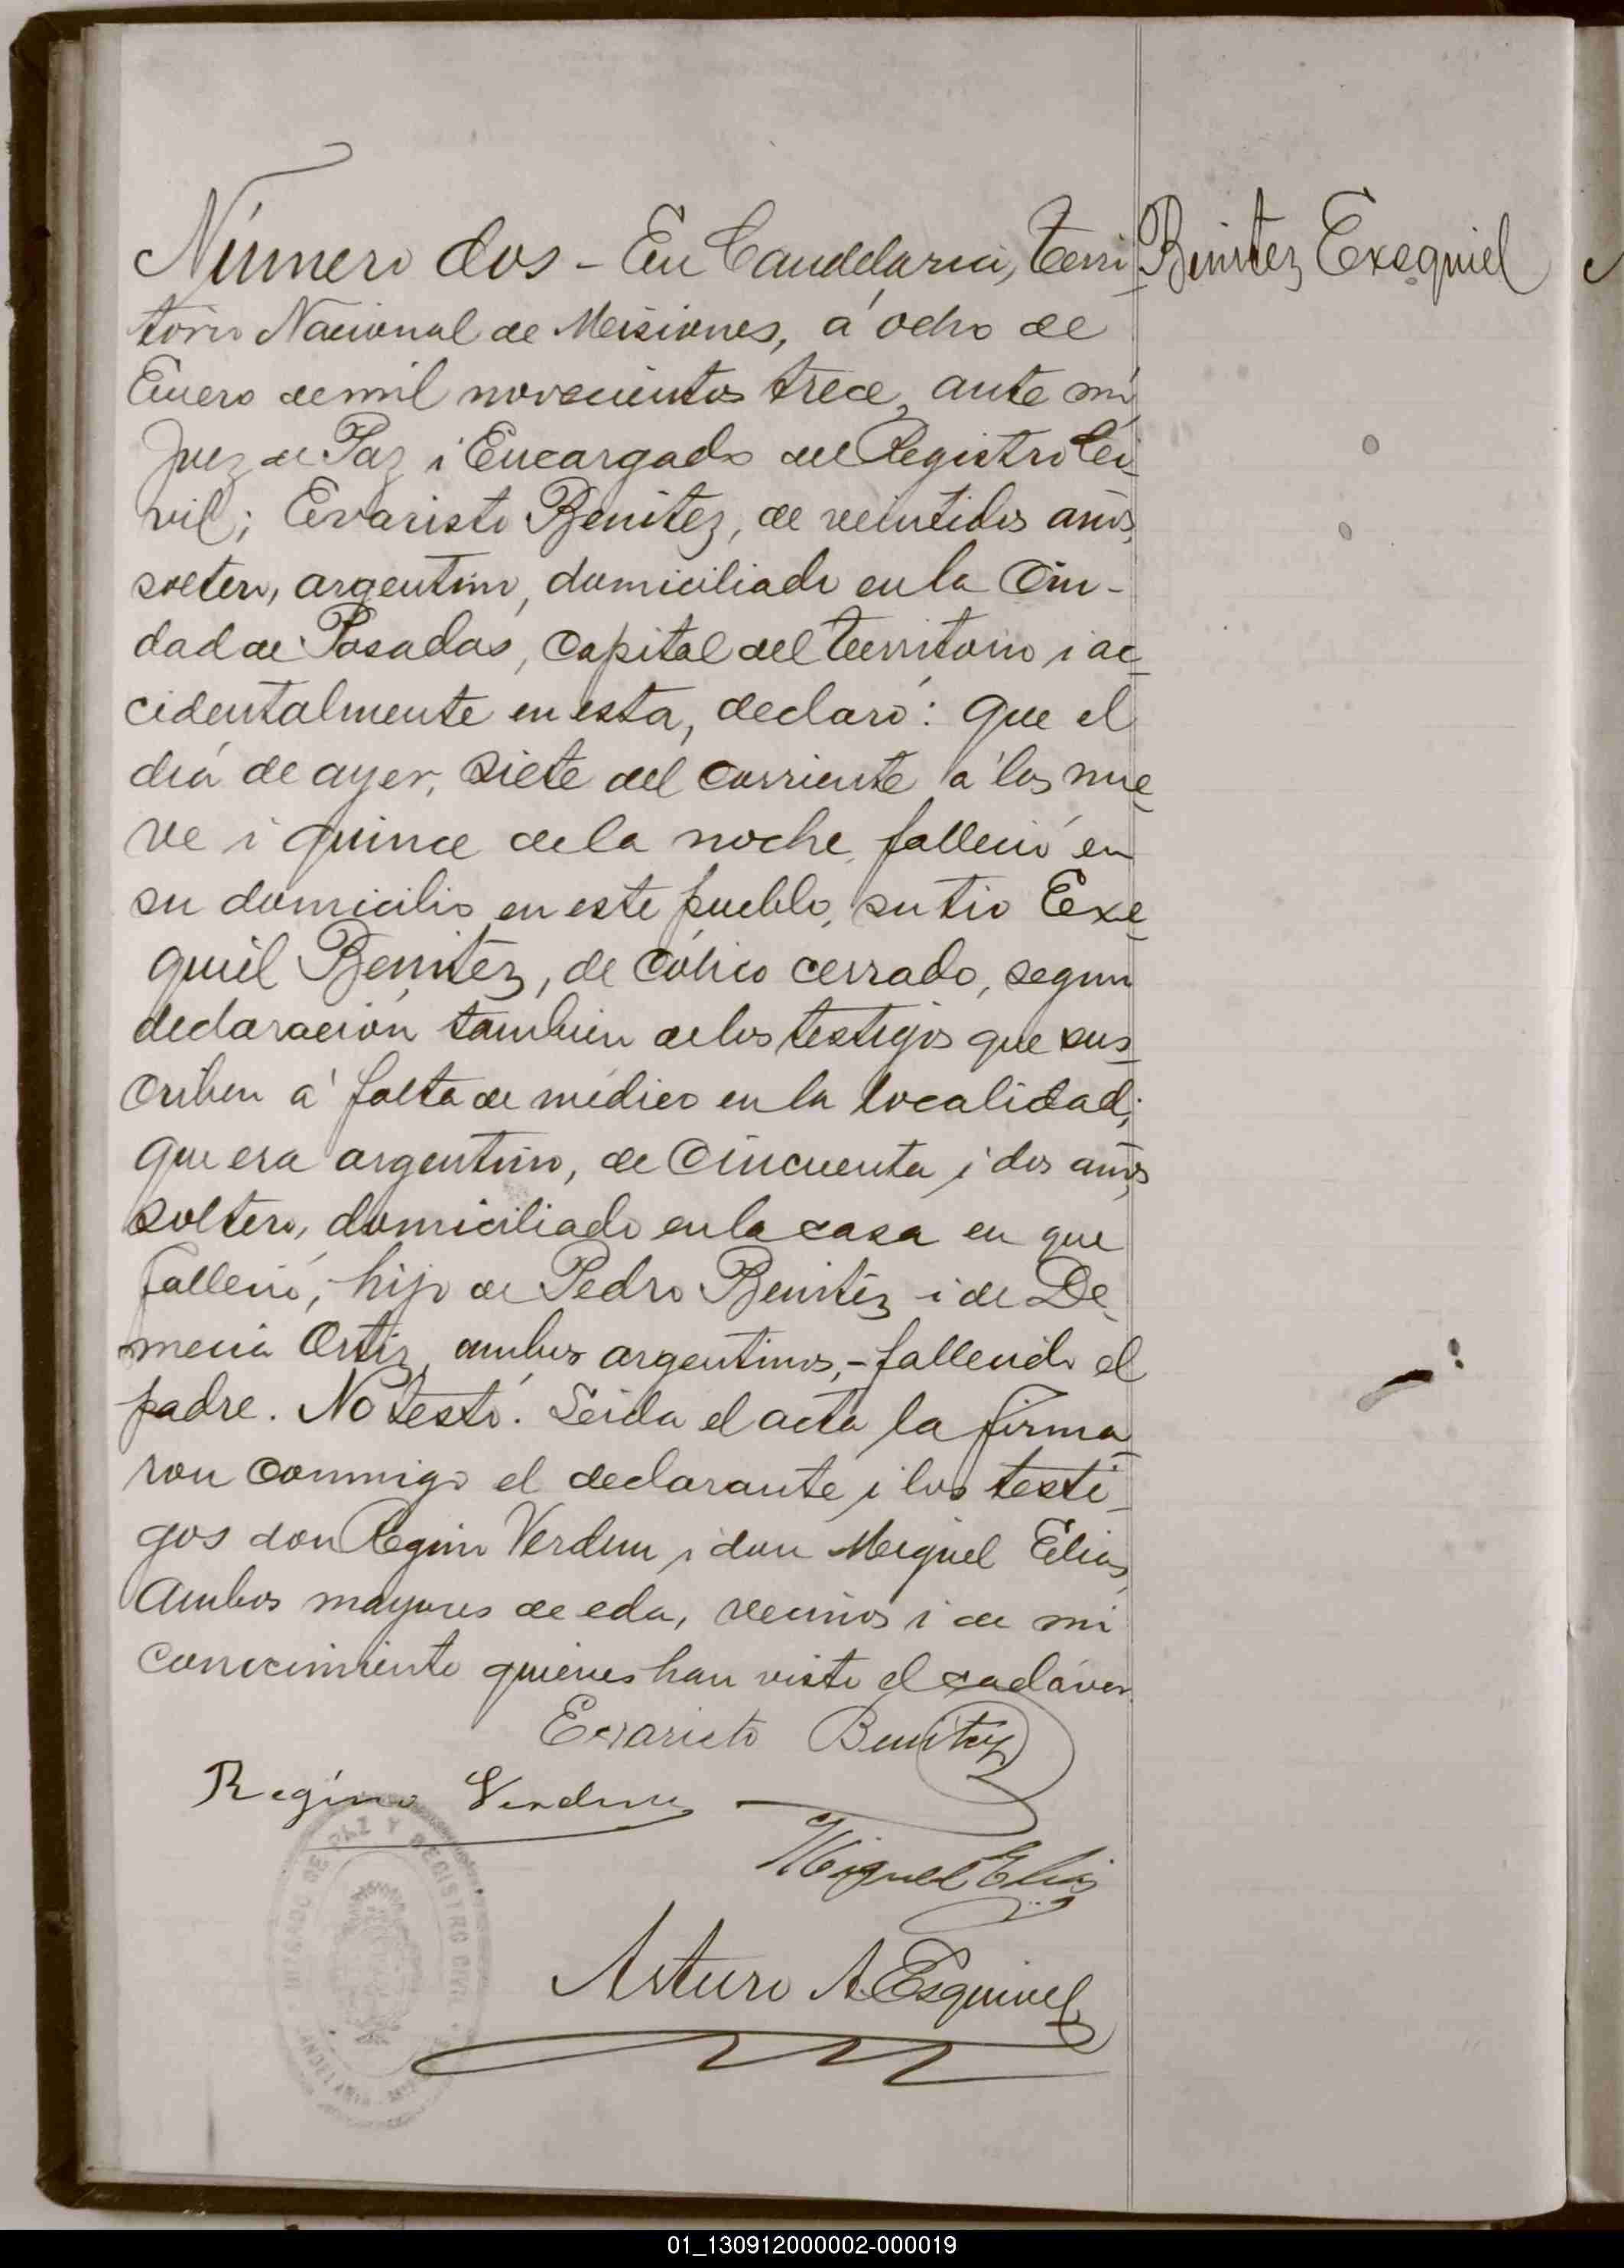 Número dos - En Candelaria, Terri
Benitez Exequiel
torio Nacional de Misiones, á ocho de
Enero de mil novecientos trece, ante mí
Juez de Paz i Encargado del Registro Ci-
vil; Evaristo Benitez, de veintidos años,
soltero, argentino, domiciliado en la Ciu-
dad de Posadas, Capital del Territorio i ac-
cidentalmente en esta, declaró: que el
día de ayer, siete del corriente á las nue-
ve i quince de la noche, falleció en
su domicilio en este pueblo, su tio Exe-
quiel Benitez, de Cólico cerrado, segun
declaración tambien de los testigos que sus-
criben á falta de médico en la localidad;
que era argentino, de cincuenta i dos años,
soltero, domiciliado en la casa en que
falleció, hijo de Pedro Benitez i de De-
mecia Ortiz, ambos argentinos,- fallecido el
padre. No testó. Leida el acta la firma-
ron conmigo el declarante i los testi-
gos don Regino Verdun i don Miguel Elias,
ambos mayores de eda, vecinos i de mi
conocimiento quienes han visto el cadáver.
Evaristo Benitez
Regino Verdun
Miguel Elias
JUZGADO DE PAZ Y REGISTRO CIVIL
Arturo A Esquivel
01_130912000002-000019